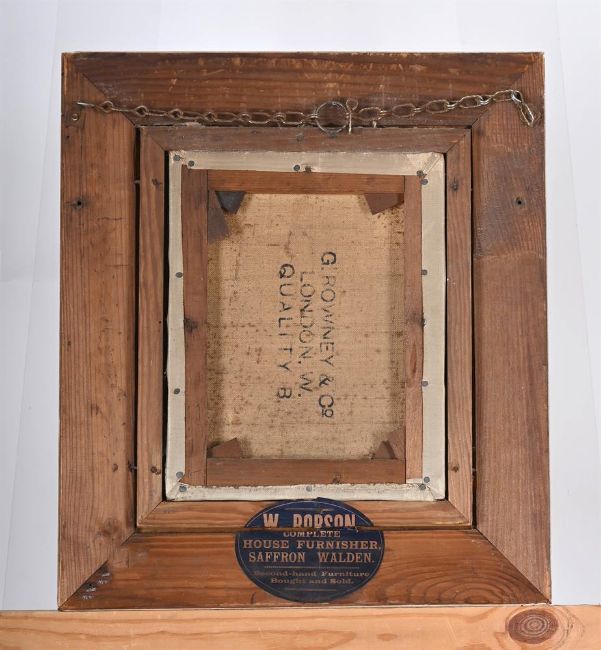 G. ROWNEY & Co
LONDON. W.
QUALITY B
W. ROBSON
COMPLETE
HOUSE FURNISHER,
SAFFRON WALDEN.
Second-hand Furniture
Bought and Sold.